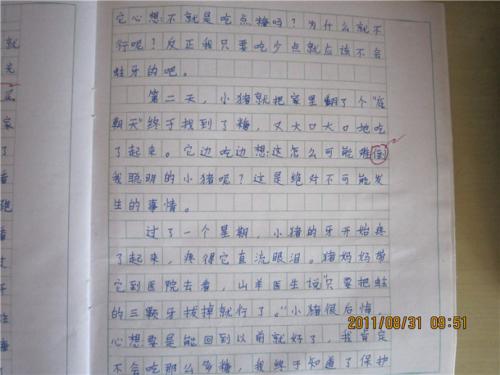 它心想:不就是吃点糖吗?为什么就不
行呢?反正我只要吃少点就应该不会
蛀牙的吧。
第二天,小猪就把家里翻了个“底
朝天”终于找到了糖,又大口大口地吃
了起来。它边吃边想:这怎么可能难倒
我聪明的小猪呢?这是绝对不可能发
生的事情。
过了一个星期,小猪的牙开始疼
了起来,疼得它直流眼泪。猪妈妈带
它到医院去看,山羊医生说“只要把蛀
的三颗牙拔掉就行了。”小猪很后悔,
心想要是能回到以前就好了,我肯定
不会吃那么多糖,我终于知道了保护
2011/08/31 09:51